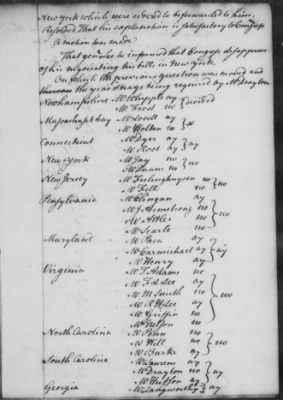 New York which were ordered to be forwarded to him.
Resolved That his explanation is satisfactory to Congress
A motion was made
That          be informed that Congress disapprove
of his negotiating his bills in New York.
On which the previous question was moved and
the yeas & nays being required by Mr Drayton
Newhampshire Mr Whipple ay } divided
Mr Frost no
Massachusetts bay Mr Lovell ay } *
Mr Holten no
Connecticut Mr Dyer ay } ay
Mr Root ay
New York Mr Jay no } no
Mr Duane no
New Jersey Mr Frelinghuysen no } no
Mr Fell no
Pensylvania Mr Clingan ay } no
Mr J Armstrong no
Mr Atlee no
Mr Searle no
Maryland Mr Paca ay } ay
Mr Carmichael ay
Mr Henry ay
Virginia Mr T Adams no } no
Mr F L Lee ay
Mr M Smith no
Mr R H Lee ay
Mr Griffin no
Mr          no
North Carolina Mr Penn no } no
Mr Hill no
Mr Burke ay
South Carolina Mr Laurens ay } ay
Mr Drayton no
Mr Hutson ay
Georgia Mr Langworthy ay } ay